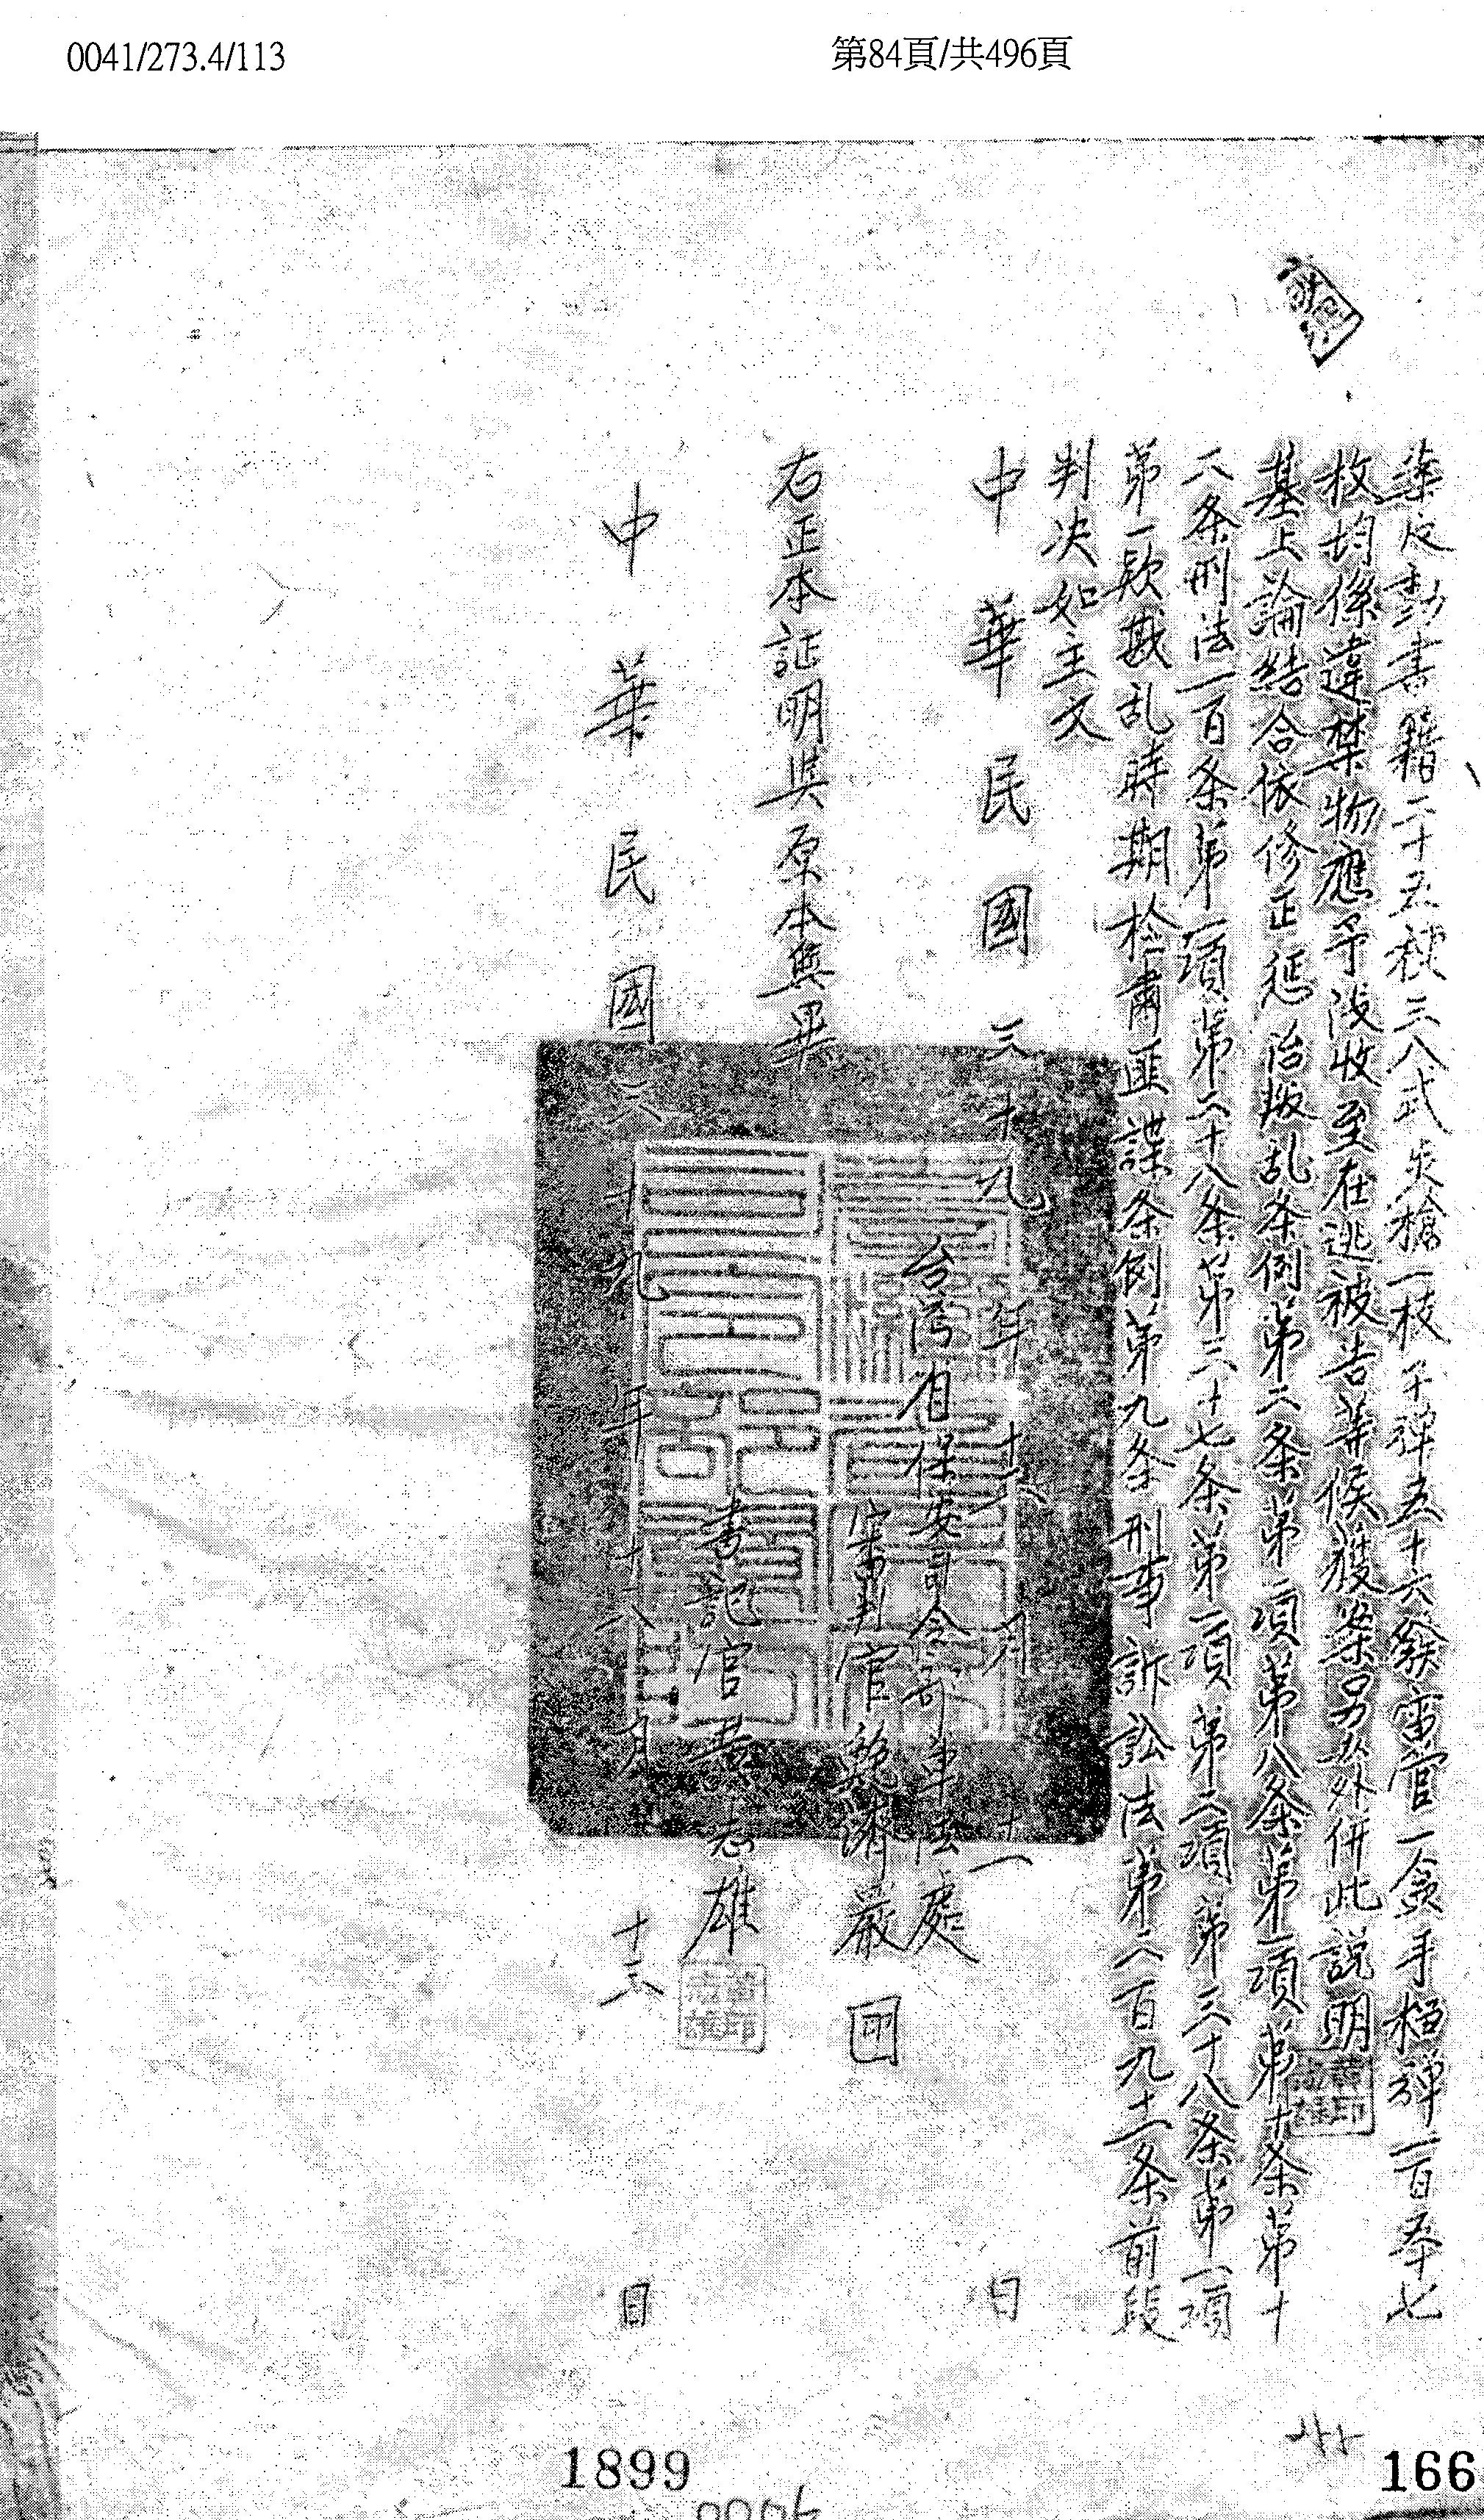 0041/273.4/113
第84頁/共496頁
書籍二十五種三八式步槍一枝子彈五十六發雷管一盒手榴彈一百
枚均係違禁物應予沒收至在逃被告等候獲案另办外併此説明
基上論結合依修正惩治叛乱条例第二条第一項第八条第一項第十条第十
二条刑法一百条第一項第二十八条第三十七条第一項第二項第三十八条第一項
第一款戡乱時期檢肅匪諜条例第九条刑事訴訟法第二百九十一条前段
判决如主文
中華民國三十九年十一月十一日
台湾省保安司令部軍法處
審判官 嚴
右正本証明與原本無異
書記官黃志雄
中華民國三十九年十月日
1899
166